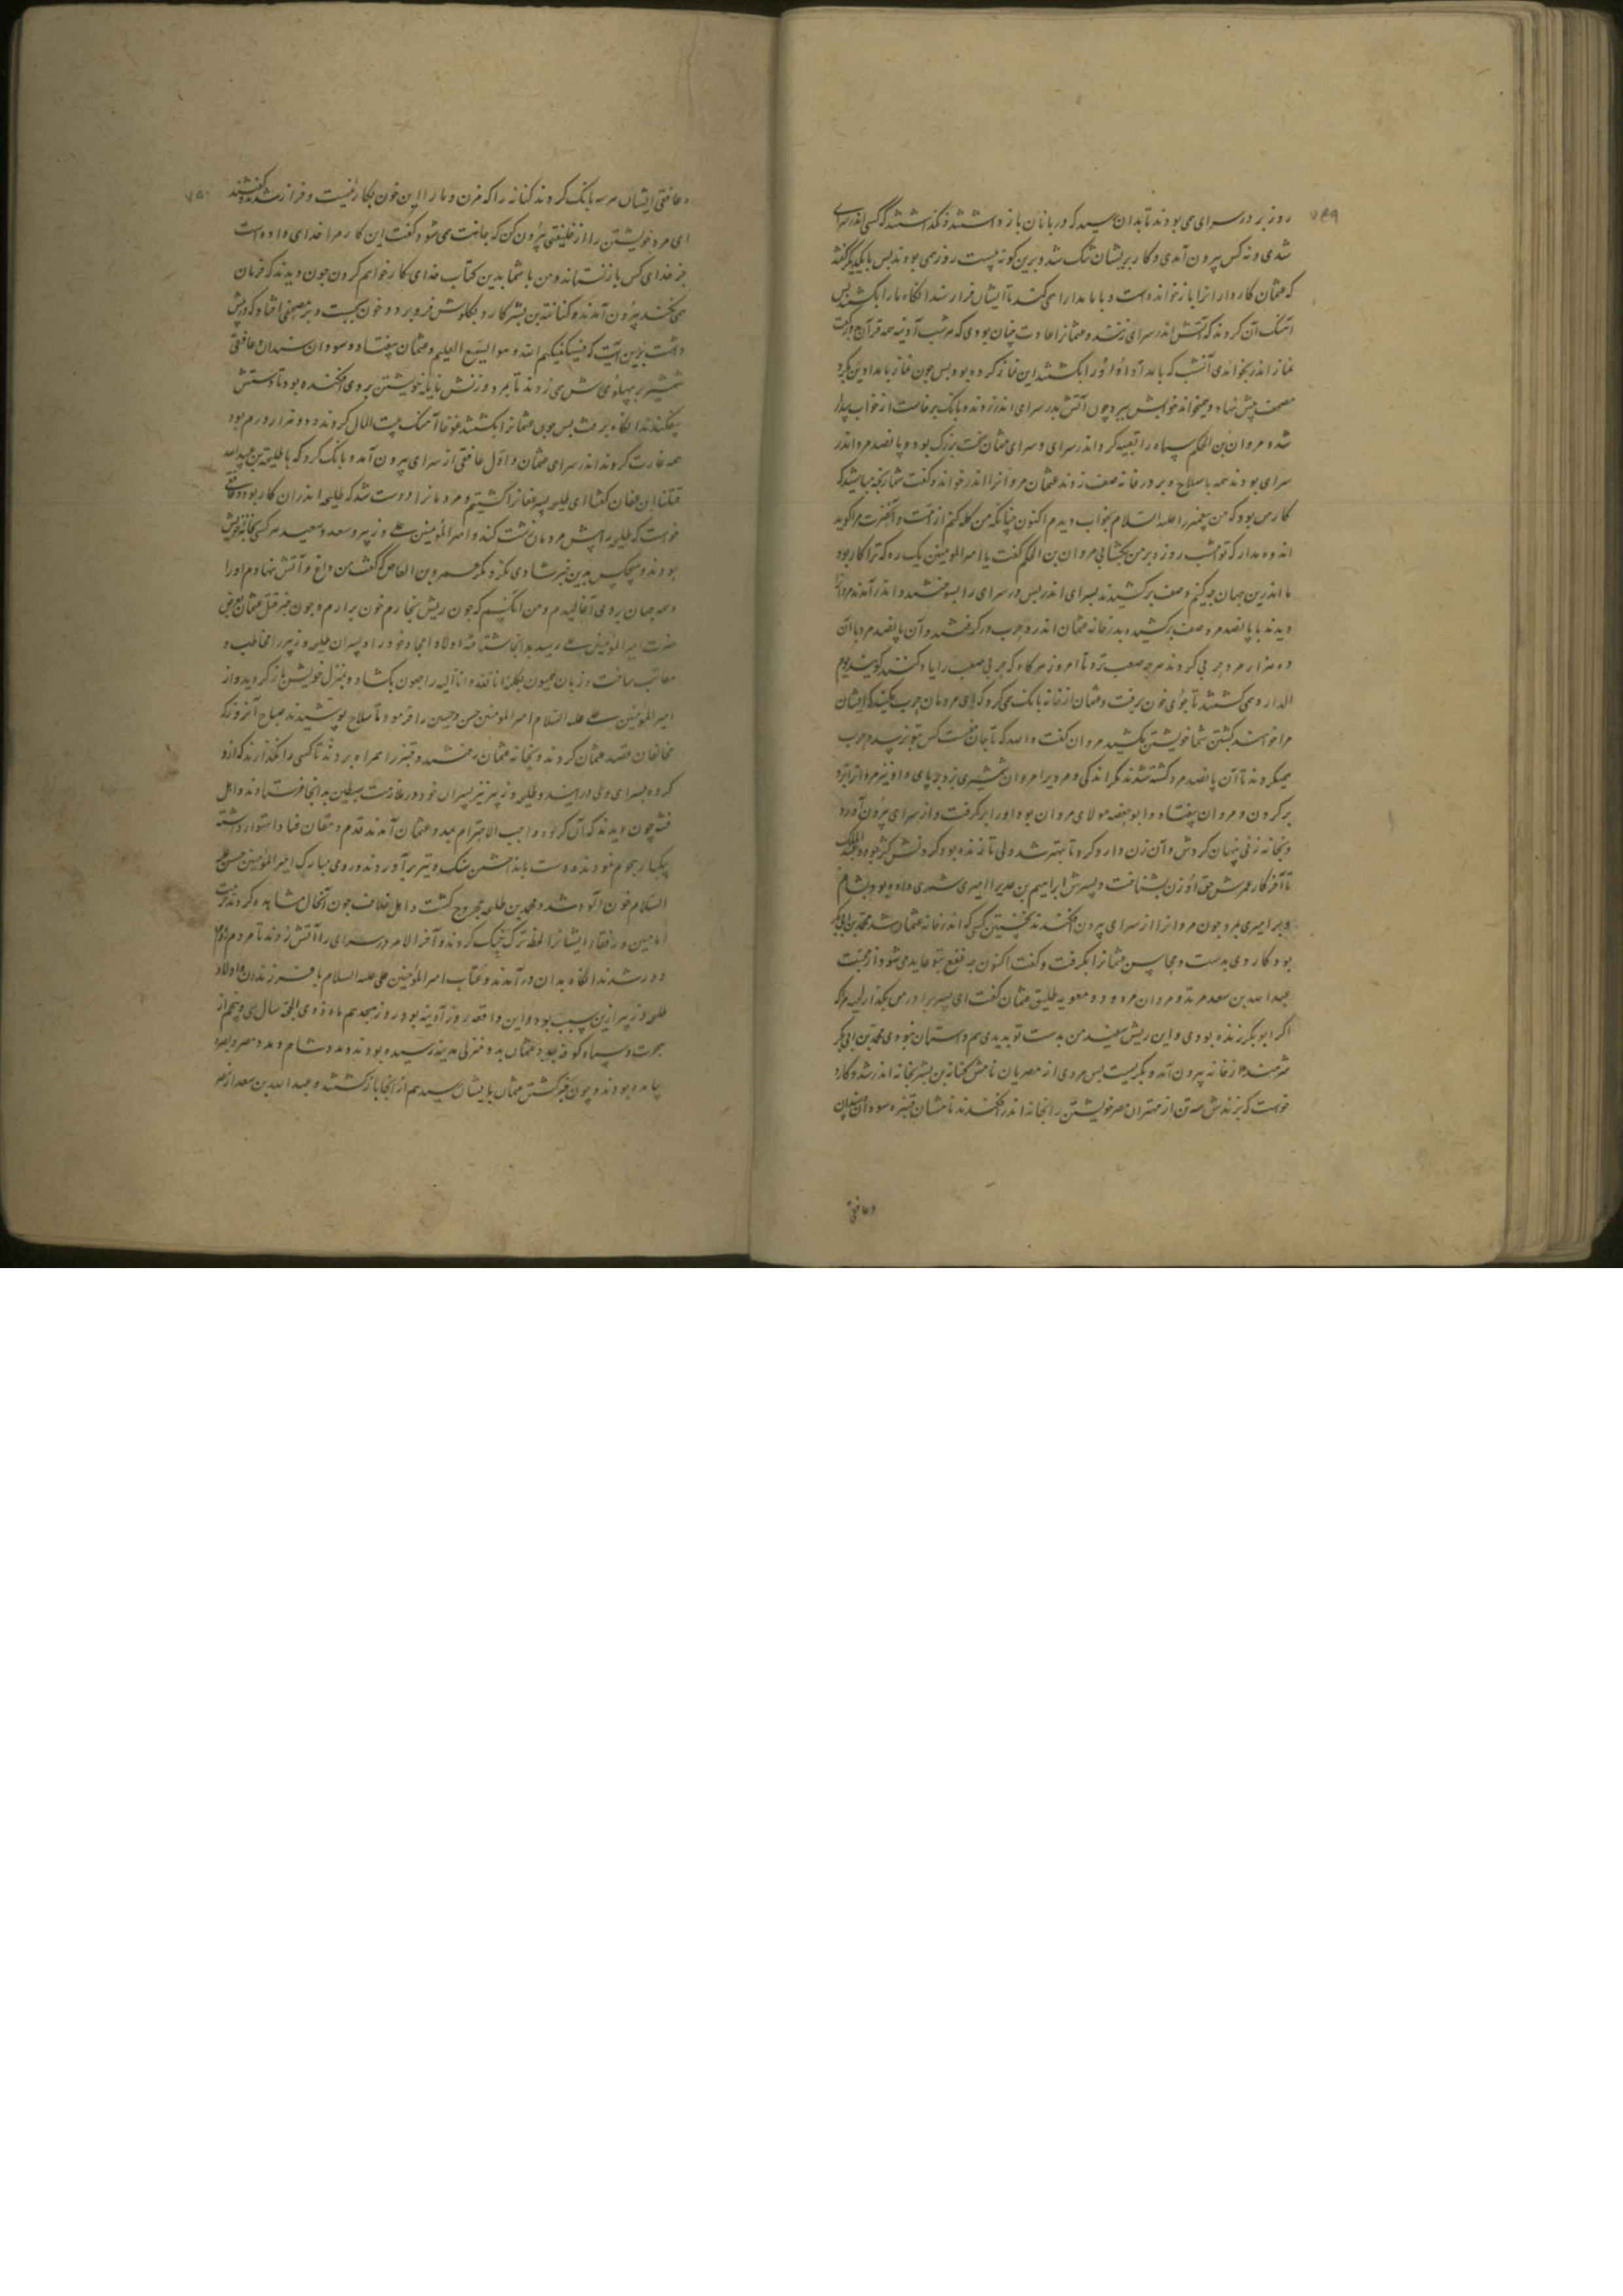 ۷۴۹
روز بر در سرای می بودند تا بدان رسید که دربانان باز داشتند و نگذاشتند که کسی اندر سرای
شدی و نه کس بیرون آمدی و کار بریشان تنک شد و برین کونه بیست روز همی بودند پس با یکدیکر گفتند
که عثمان کارداران را باز خوانده است و با ما مدارا می کند تا ایشان فراز رسند انکاه ما را بکشند پس
آهنک آن کردند که آتش اندر سرای زنند و عثمانرا عادت چنان بودی که هر شب آدینه همه قرآن بدو رکعت
نماز اندر بخواندی آنشب که بامداد او را بکشتند این نماز کرده بود پس چون نماز بامدادین بکرد
مصحف پیش نهاد و میخواند خوابش ببرد چون آتش بدر سرای اندر زدند و بانک برخاست از خواب بیدار
شد و مروان بن الحکم سپاه را تعبیه کرد اندر سرای و سرای عثمان سخت بزرک بود و پانصد مرد اندر
سرای بودند همه با سلاح و بر در خانه صف زدند عثمان مروانرا اندر خواند و گفت شما رنجه مباشید که
کار من بود که من پیغمبر را علیه السلام بخواب دیدم اکنون چنانکه من کله کنم از امت و آنحضرت مرا کوید
اندوه مدار که تو امشب روزه بر من بکشایی مروان بن الحکم گفت یا امیرالمومنین یک ره که ترا کار بود
ما اندرین جهان چه کنیم و صف برکشیدند بسرای اندر پس در سرای را بسوختند و اندر آمدند مروانرا
دیدند با پانصد مرد صف برکشیده بدر خانه عثمان اندر و حرب در گرفتند و آن پانصد مرد با آن
ده هزار مرد حربی کردند هر چه صعب تر و تا امروز هر کاه که حربی صعب را یاد کنند کویند یوم
الدار و همی کشتند تا جوی خون برفت و عثمان از خانه بانک همی کرد که ای مردمان حرب مکنید که ایشان
مرا خواهند کشتن شما خویشتن مکشید مروان گفت والله که تا جان هست کس بتو نرسد و حرب
همیکردند تا آن پانصد مرد کشته شدند مکر اندکی و مردی مروان را شمشیری بزد بر پای و او نیز مروانرا بزد
بر کردن و مروان بیفتاد و ابو حفصه مولای مروان بود او را بر گرفت و از سرای بیرون آورد
و بخانه زنی پنهان کردش و آن زن دارو کرد تا بهتر شد ولی تا زنده بود کردنش کژ بود و عبدالملک
تا آخر کار عمرش حق آن زن بشناخت و پسرش ابراهیم بن عدی را امیری شهری داده بود بشام
و بر امیری بمرد چون مروانرا از سرای بیرون افکندند نخستین کسی که اندر خانه عثمان شد محمد بن ابی بکر
بود کاردی بدست و محاسن عثمانرا بکرفت و گفت اکنون چه نفع بتو عاید می شود از محبت
عبدالله بن سعد مرتد و مروان مردود و معویه طلیق عثمان گفت ای پسر برادر من بگذار لحیه مرا که
اکر ابوبکر زنده بودی و این ریش سفید من بدست تو بدیدی هم داستان نبودی محمد بن ابی بکر
شرمنده از خانه بیرون آمد و بکریست پس مردی از مصریان نامش کنانة بن بشر بخانه اندر شد و کارد
خواست که بزندش سه تن از مهتران مصر خویشتن را بخانه اندر افکندند نامشان قتیره سودان
و عافقی
۷۵۰
و عافقی ایشان هر سه بانک کردند کنانه را که مزن و ما را این خون بکار نیست و فراز شدند و گفتند
ای مرد خویشتن را از خلیفتی بیرون کن که جانت می شود گفت این کار مرا خدای داده است
جز خدای کس باز نستاند و من با شما بدین کتاب خدای کار خواهم کردن چون دیدند که فرمان
نمی کند بیرون آمدند و کنانة بن بشر کارد بکلوش فرو برد و خون بجست و بر مصحفی افتاد که در پیش
داشت برین آیت که فسیکفیکهم الله و هو السمیع العلیم و عثمان بیفتاد و سودان بن حمران و عافقی
شمشیر بر پهلوی اش می زدند تا بمرد و زنش نایله خویشتن بر وی افکنده بود تا دستش
بیفکندند انکاه برخاست پس چون عثمانرا بکشتند غوغا آهنک بیت المال کردند و دو هزار درم بود
همه غارت کردند اندر سرای عثمان و اول عافقی از سرای بیرون آمد و بانک کرد که یا طلحة بن عبیدالله
قتلنا ابن عفان گفتا ای طلحه پسر عفانرا کشتیم و مردمانرا درست شد که طلحه اندران کار بود و عافقی
خواست که طلحه را پیش مردمان زشت کند و امیر المؤمنین علی و زبیر و سعد و سعید هر کسی بخانه خویش
بودند و هیچکس بدین خبر شادی نکرد مکر عمرو بن العاص که گفت من داغ و آتش نهادم او را
و همه جهان بر وی آغالیدم و من آنکسم که چون ریش بخارم خون برآرم و چون خبر قتل عثمان بعرض
حضرت امیر المؤمنین علی رسید بدانجا شتافته اولاد امجاد خود را و پسران طلحه و زبیر را مخاطب و
معاتب ساخت و زبان همیون بکلمه انا لله و انا الیه راجعون بکشاد و بمنزل خویش باز گردید و از
امیر المؤمنین علی علیه السلام امیر المومنین حسن و حسین را فرمود تا سلاح پوشیدند صباح آنروز که
مخالفان قصد عثمان کردند و بخانه عثمان رفتند و قنبر را همراه بردند تا کسی را نگذارند که از و
کروه بسرای وی در آیند و طلحه و زبیر نیز پسران خود در ملازمت سبطین بدانجا فرستادند و اهل
فتنه چون دیدند که آن کروه واجب الاحترام بمدد عثمان آمدند قدم در مقام عناد استوار داشته
بیکبار هجوم نمودند و دست بانداختن سنک و تیر برآوردند و روی مبارک امیر المؤمنین حسن علیه
السلام خون آلوده شد و محمد بن طلحه مجروح گشت و اهل خلاف چون آنحال مشاهده کردند از
امامین و رفقاء ایشانرا لحظه ترک جنک کردند و آخر الامر در سرای را آتش زدند تا مردم از
دور شدند انکاه بدان در آمدند و عتاب امیر المؤمنین علی علیه السلام با فرزندان و اولاد
طلحه و زبیر ازین سبب بود و این واقعه روز آدینه بود در روز هجدهم ماه ذی الحجة سال سی و پنجم از
هجرت و سپاه کوفه بمدد عثمان بدو منزلی مدینه رسیده بودند و مدد شام و مدد مصر و بصره
بیامده بودند و چون خبر کشتن عثمان بایشان رسید هم از آنجا باز کشتند و عبدالله بن سعد از مصر